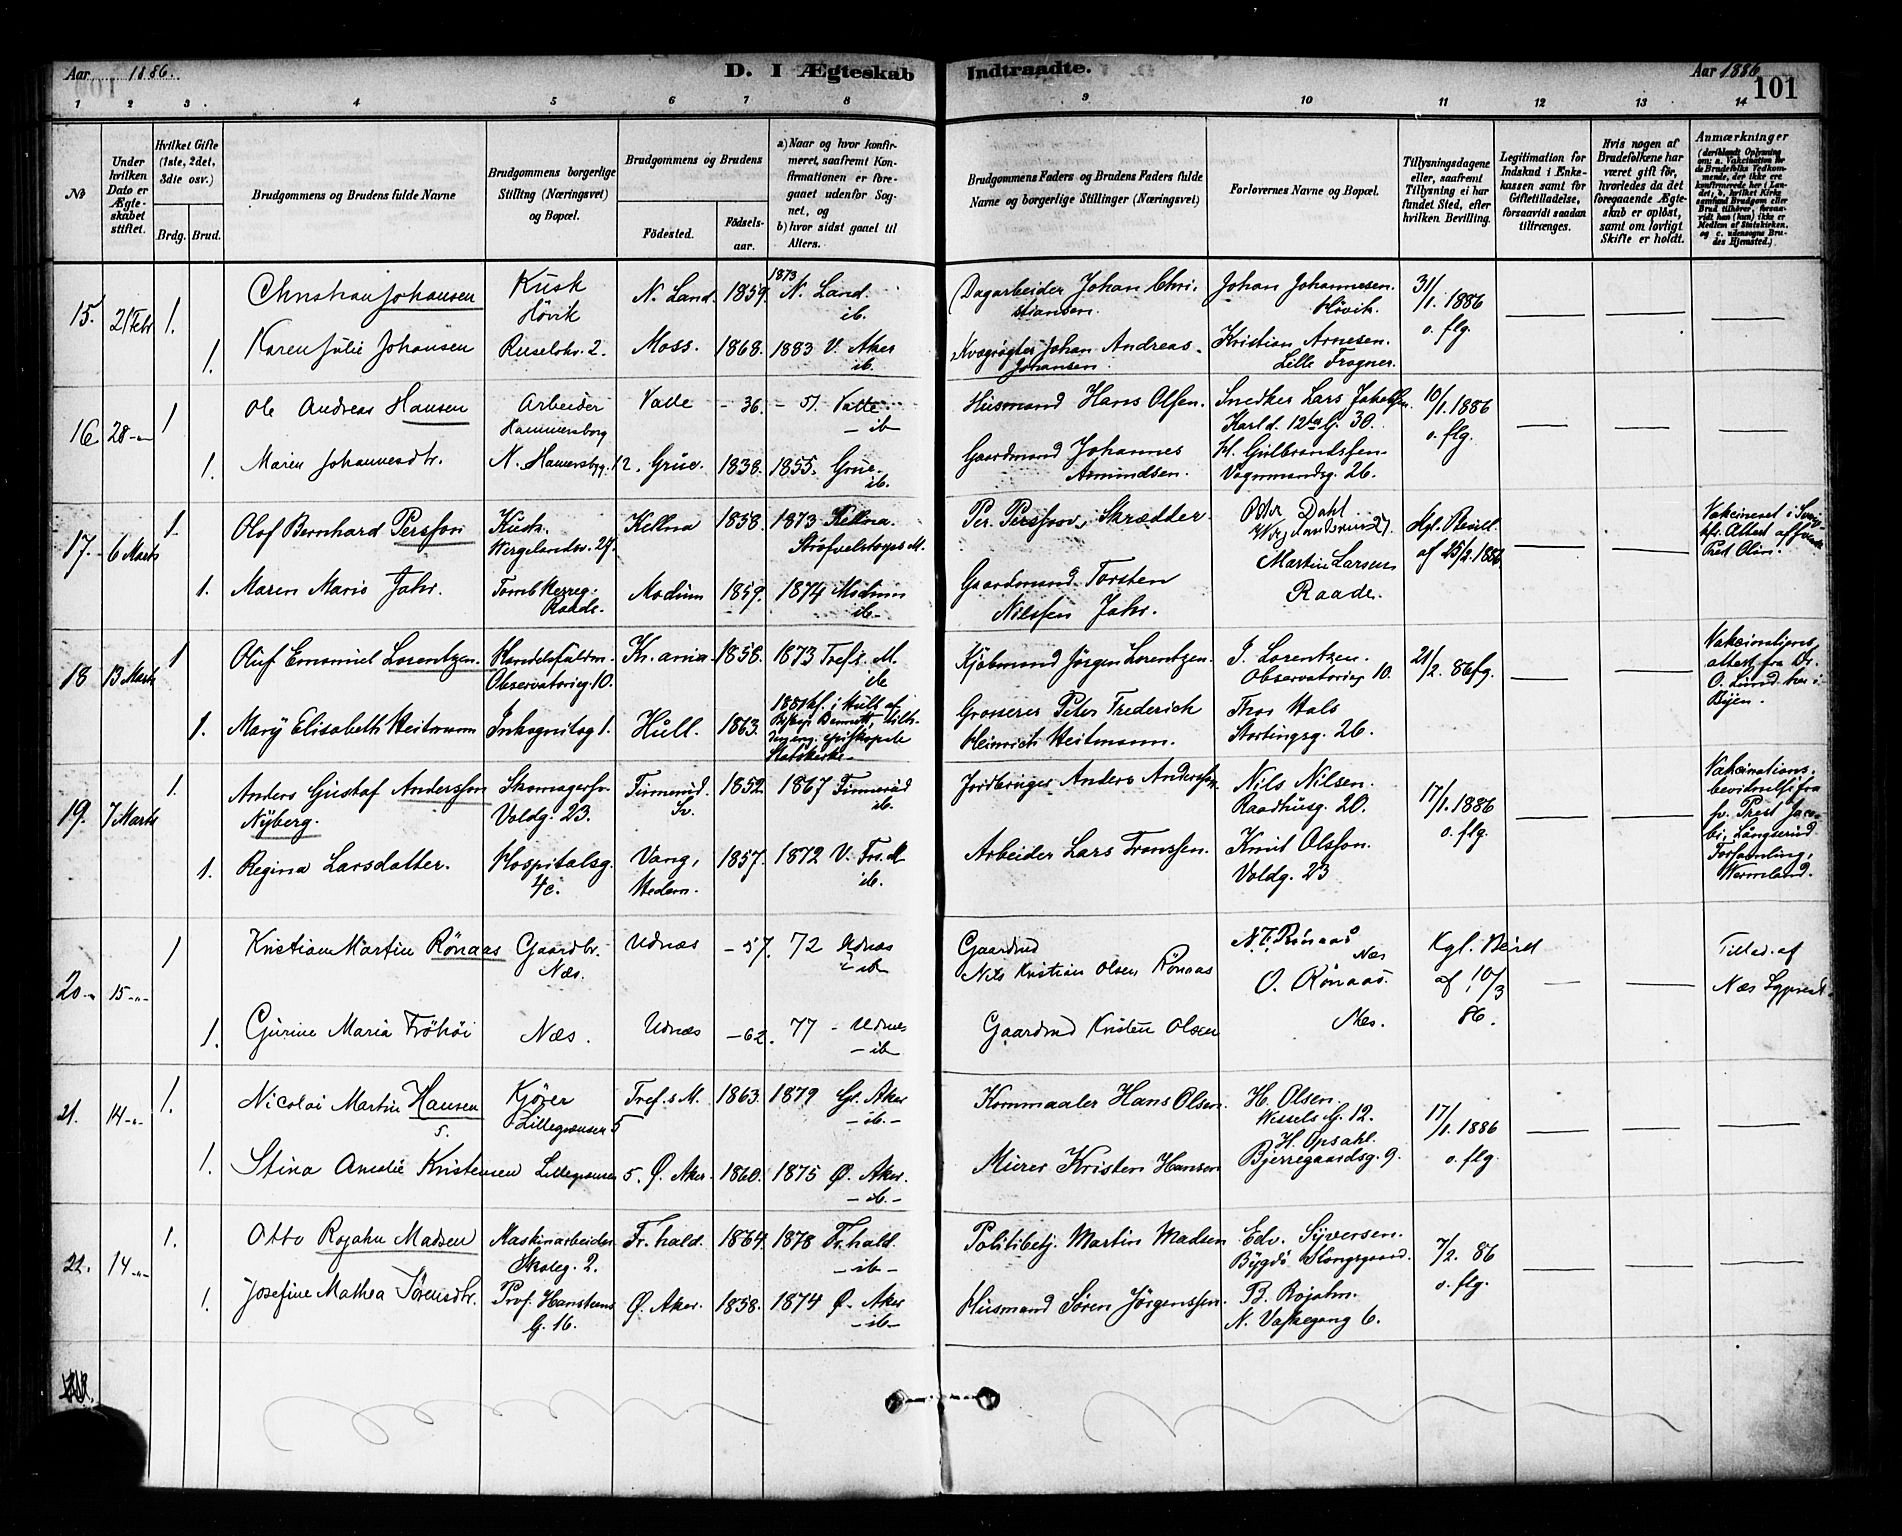 Aar 1886.
D. I Ægteskab Indtraadte.
Aar 1886
101
1 2 3 4 5 6 7 8 9 10 11 12 13 14
No
Under hvilken Dato er Ægteskabet stiftet.
Hvilket Gifte (1ste, 2det, 3die osv.)
Brdg. Brud.
Brudgommens og Brudens fulde Navne
Brudgommens borgerlige Stilling (Næringsvei) og Bopæl.
Brudgommens og Brudens
Födested.
Födselsaar.
a) Naar og hvor konfirmeret, saafremt Konfirmationen er foregaaet udenfor Sognet, og
b) hvor sidst gaaet til Alters.
Brudgommens Faders og Brudens Faders fulde Navne og borgerlige Stillinger (Næringsvei)
Forlovernes Navne og Bopæl.
Tillysningsdagene eller, saafremt Tillysning ei har fundet Sted, efter hvilken Bevilling.
Legitimation for Indskud i Enkekassen samt for Giftetilladelse, forsaavidt saadan tiltrænges.
Hvis nogen af Brudefolkene har været gift før, hvorledes da det foregaaende Ægteskab er opløst, samt om lovligt Skifte er holdt.
Anmærkninger
(deriblandt Oplysning om: a. Vakcination for de Brudefolks Vedkommende, der ikke ere konfirmerede her i Landet, b. hvilket Kirkesamfund Brudgom eller Brud tilhører, forsaavidt han (hun) ikke er Medlem af Statskirken, og c. udensogns Brudes Hjemsted.)
15. 21 Febr 1. Christian Johansen Kusk Hövik N. Land. 1859. 1873 N. Land. ib.
Dagarbeider Johan Christiansen. Johan Johannesen. Hövik. 31/1. 1886 o. flg.
1. Karen Julie Johansen 2. Moss. 1868. 1883 V. Aker ib.
Johan Andreas Johansen. Kristian Arnesen. Lille Frogner.
16 28 1 Ole Andreas Hansen Arbeider Hammersborg Valle - 36. - 51. Valle - ib
Husmand Hans Olsen. Snedker Lars Jakobsen Karl d. 12tes G. 30. 10/1. 1886 o. flg.
1. Maren Johannesdtr. N. Hamersbg. 12. Grue. 1838. 1855. Grue. ib.
Gaardmand Johannes Amundsen. H. Gulbrandsen Vognmandsg. 26.
17. 6 Marts 1. Olof Bernhard Persson Kusk. Wergelandsv. 27. Kellna 1858. 1873 Kellna.
Per Persson, Skrædder. Dahl 27. Kgl. Bevill. af 25/2. 1886 Vakcineret i Attest af Prest Olin.
1. Maren Marie Jahr. Raade. Modum 1859. 1874 Modum ib.
Gaardmand Torsten Nilssen Jahr. Martin Larsen Raade.
18 13 Marts 1 Oluf Emanuel Lorentzen. Handelsfuldm. Observatorieg. 10. Kr.ania. 1858. 1873 Trefs. M. ib
Kjøbmand Jörgen Lorentzen. J. Lorentzen. Observatorieg. 10. 21/2. 86 flg. Vakcinations attest fra Dr. O. Lund her i Byen.
1. Mary Elisabeth Heitmann Inkognitog 1. Hull. 1863. 1880 kf. i Hull af Biskop Statskirke.
Grosserer Peter Frederich Heinrich Heitmann. Thor Hals Stortingsg. 26.
19. 7 Marts 1. Anders Gustaf Andersson Nyberg. Skomagersv. Voldg. 23. Sv. 1852. 1867 ib.
Jordbruger Anders Andersson. Nils Nilsen. Raadhusg. 20. 17/1. 1886 o. flg. Vakcinations bevidnelse fra Prest Långserud Forsamling, Wermland.
1. Regina Larsdatter. Hospitalsg. 4c. Vang, Hedem. 1857. 1872 V. Frs. M ib.
Arbeider Lars Franssen. Knut Olsson. Voldg. 23
20 15 1 Kristian Martin Rönaas Gaardbr. Næs. Udnæs - 57. 72 Udnæs ib
Gaardmd Nils Kristian Olsen Rönaas N. C. Rönaas Næs Kgl. Bevil af 10/3 86. Tillad. af Næs Sgprest.
1. Gurine Maria Fröhöi Næs. Udnæs - 62. 77 - Udnæs - ib
Gaardmd Kristen Olsen O. Rönaas. Næs.
21. 14 1. Nicolai Martin Hansen 5. Kjörer Lillegrænsen 5 Tref. s M. 1863. 1879 Gl. Aker - ib. -
Kornmaaler Hans Olsen. H. Olsen. Wessels G. 12. 17/1. 1886 o. flg.
1. Stina Amalie Kristensen Lillegrænsen 5. Ø. Aker. 1860. 1875 Ø. Aker. - ib. -
Murer Kristen Hansen H. Opsahl. Bjerregaardsg. 9.
22. 14 1. Otto Rojahn Madsen Maskinarbeider Skoleg. 2. Fr.hald. 1864. 1878 Fr.hald. - ib -
Politibetj. Martin Madsen Edv. Syversen. Bygdö Kongsgaard. 7/2. 86 o. flg.
1. Josefine Mathea Sörensdtr. Prof. Hansteens G. 16. Ø. Aker. 1858. 1874 Ø. Aker - ib -
Husmand Sören Jörgenssen. B. Rojahn. N. Vaskegang 6.